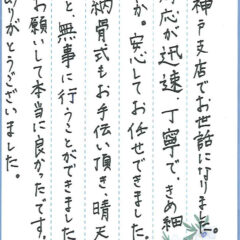 神戸支店でお世話になりました。
対応が迅速、丁寧で、きめ細
か。安心してお任せできました。
納骨式もお手伝い頂き、晴天
と、無事に行うことができました
お願いして本当に良かったです。
ありがとうございました。